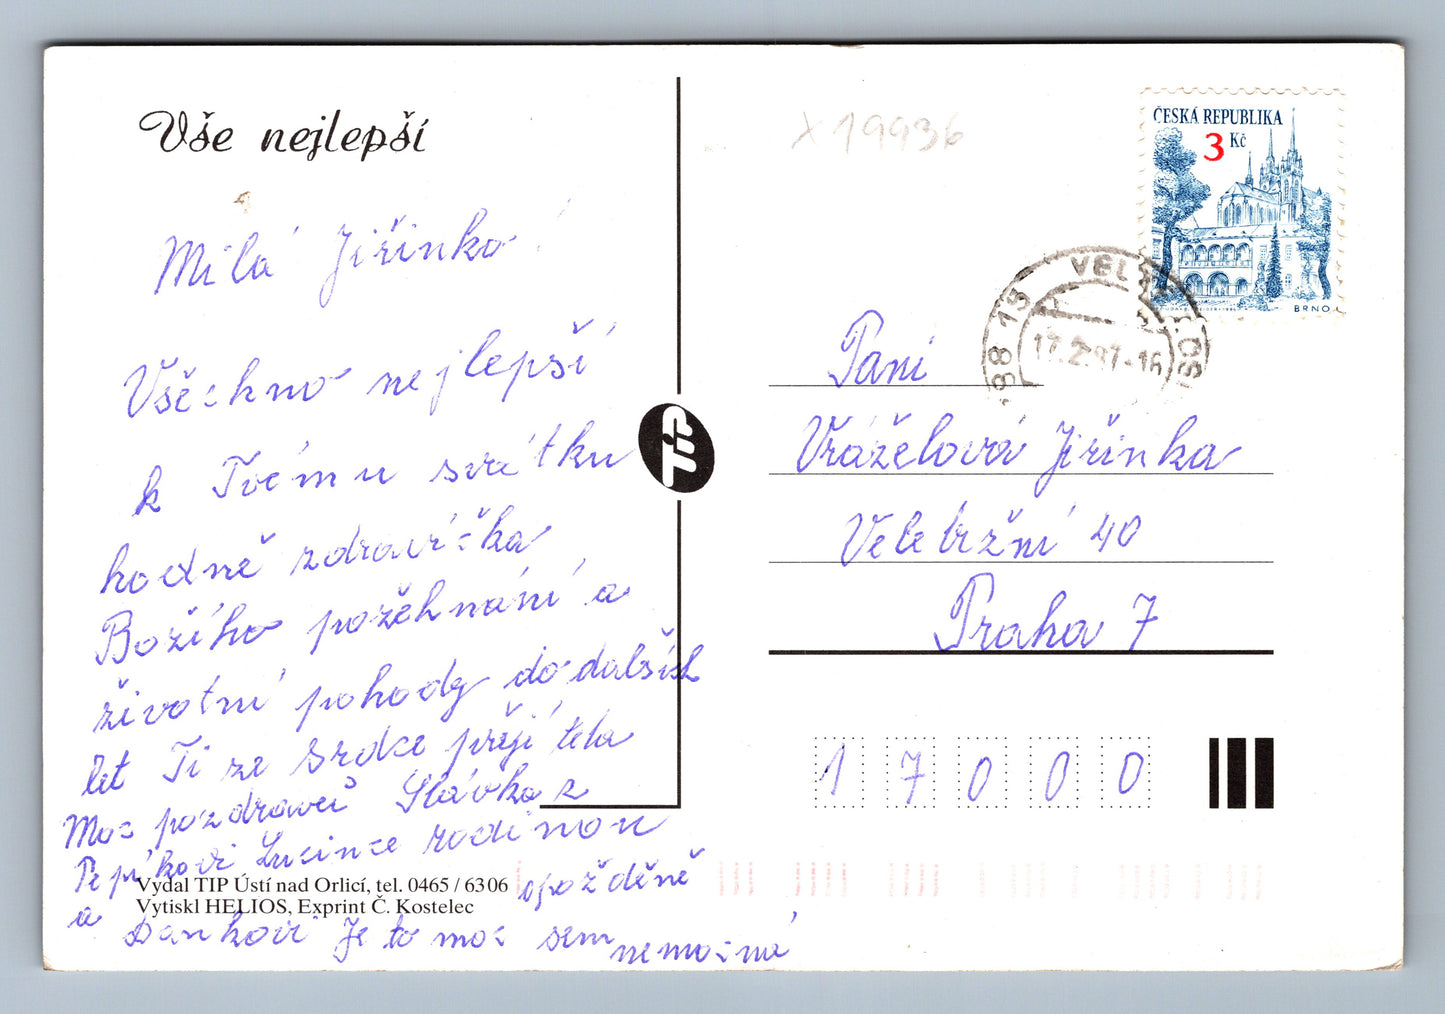 Vše nejlepší
Milá Jiřinko!
Všechno nejlepší
k Tvému svátku
hodně zdravíčka
Božího požehnání a
životní pohody do dalších
let Ti ze srdce přejí teta
Slávka z
Moc pozdravů
Pepíkovi Lucince rodinou
a Dankovi
opožděně
Je to moc sem nemocná
Vydal TIP Ústí nad Orlicí, tel. 0465 / 6306
Vytiskl HELIOS, Exprint Č. Kostelec
TIP
x 19936
ČESKÁ REPUBLIKA
3 Kč
BRNO
17.2.97-16
Paní
Vráželová Jiřinka
Veletržní 40
Praha 7
1 7 0 0 0